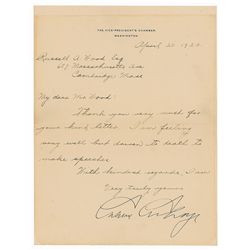 THE VICE-PRESIDENT'S CHAMBER
WASHINGTON
April 20 1920
Russell A Wood Esq
Massachusetts Ave
Cambridge Mass
My dear Mr Wood:
Thank you very much for
your kind letter. I am feeling
very well but driven to death to
make speeches
With kindest regards I am
Very truly yours